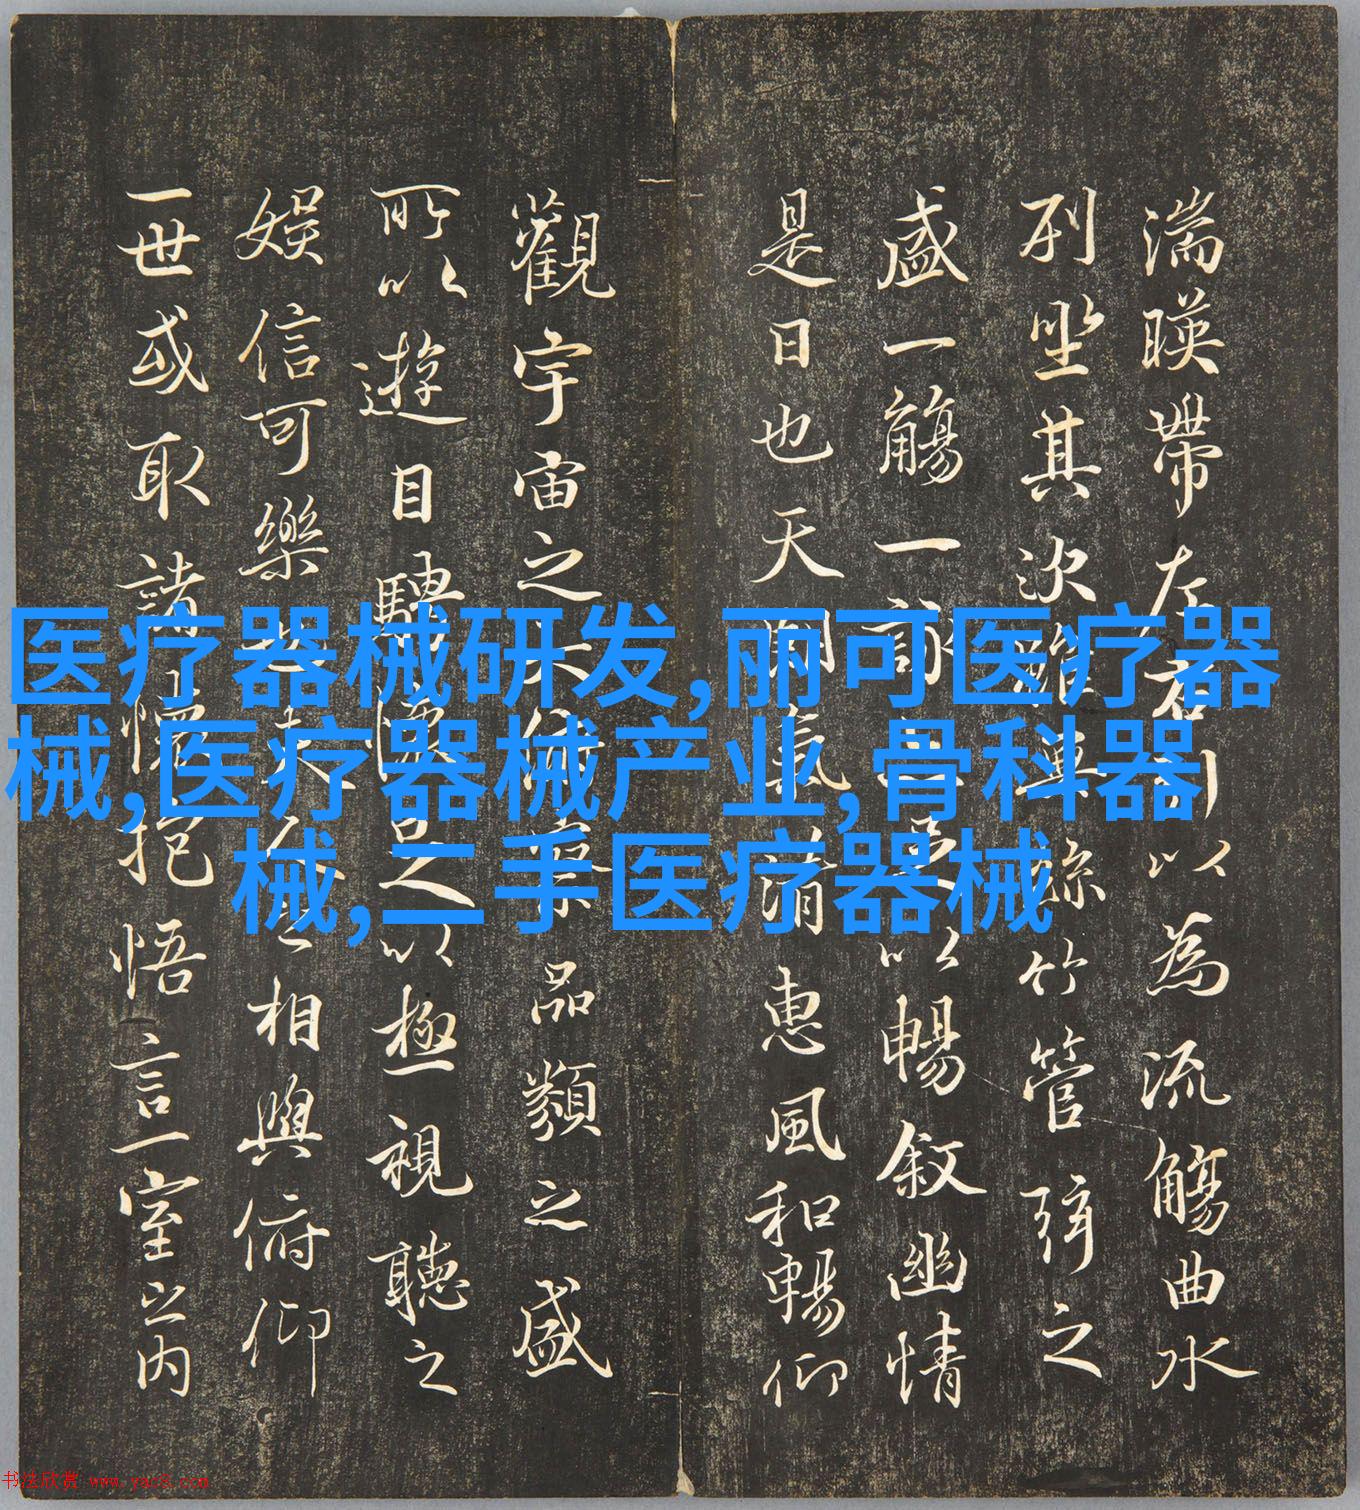 湍暎帶左右引以為流觴曲水
列坐其次雖無絲竹管弦之
盛一觴一詠亦足以暢叙幽情
是日也天朗氣清惠風和暢仰
觀宇宙之大俯察品類之盛
所以遊目騁懷足以極視聽之
娛信可樂也夫人之相與俯仰
一世或取諸懷抱悟言一室之内
医疗器械研发,丽可医疗器
械,医疗器械产业,骨科器
械,二手医疗器械
书法欣赏 www.yac8.com